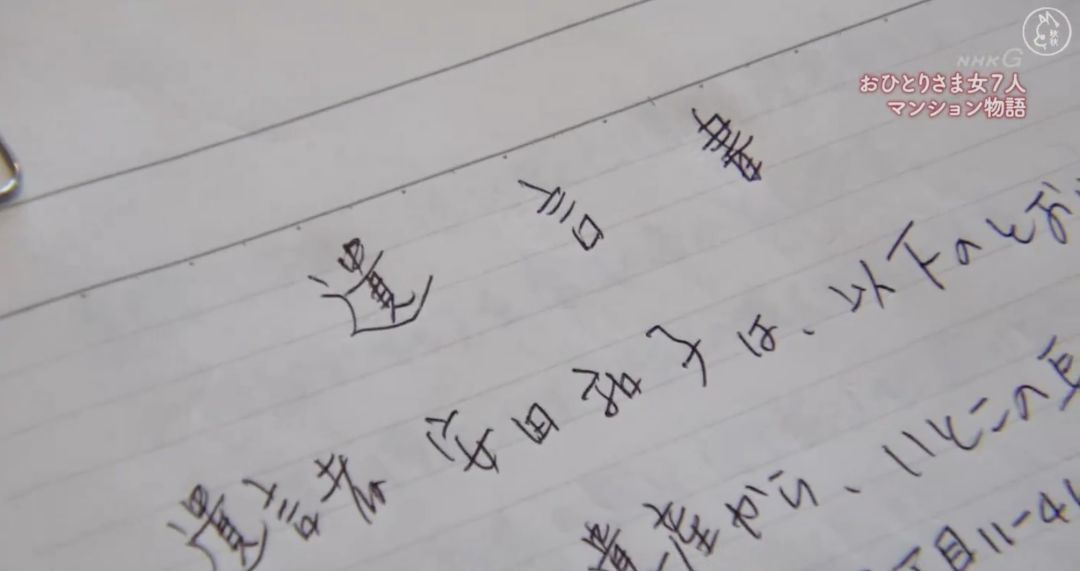 秋秋
NHK G
おひとりさま女7人
マンション物語
遺言書
遺言者 安田 子は、以下のとお
遺産から、いとこの
丁目11-41